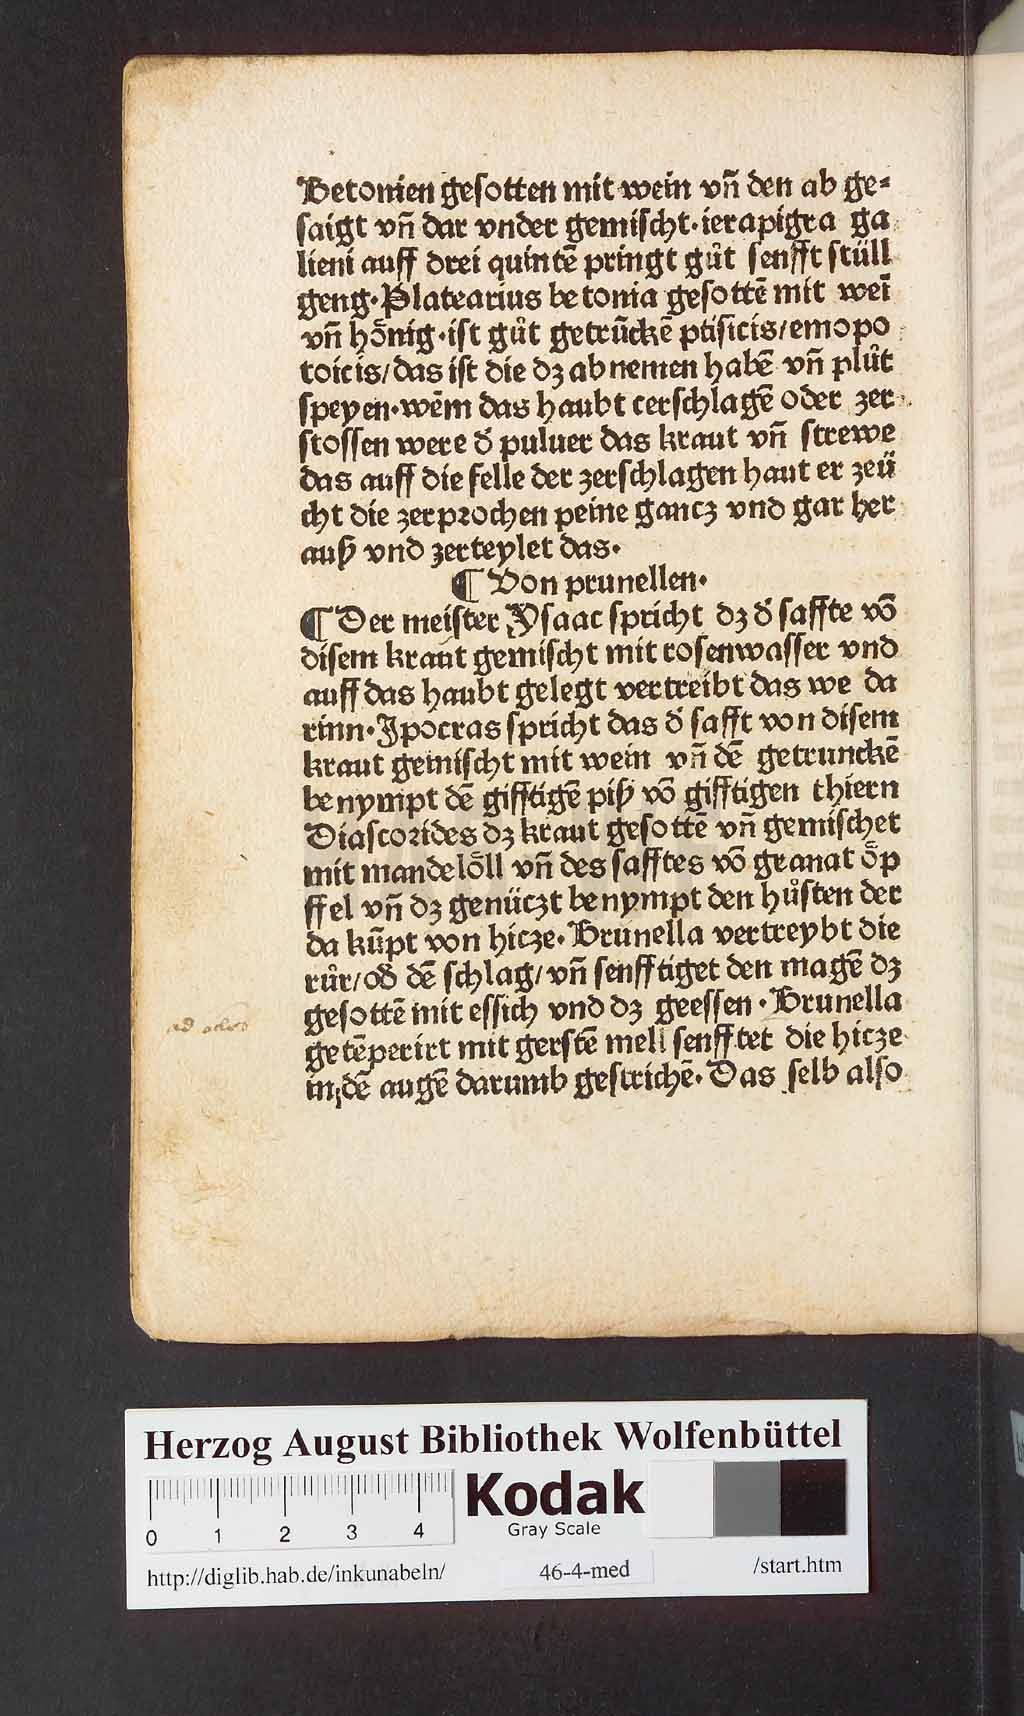 Betonien gesotten mit wein vn̄ den ab ge⸗
saigt vn̄ dar vnder gemischt·ierapigra ga
lieni auff drei quintē pringt gůt senfft stüll
geng·Platearius betonia gesottē mit wei̅
vn̄ hönig·ist gůt getrūckē ptisicis/emopo
toicis/das ist die dz ab nemen habē vn̄ plůt
speyen·wēm das haubt cerschlagē oder zer
stossen were d̕ puluer das kraut vn̄ strewe
das auff die felle der zerschlagen haut er zeü
cht die zerprochen peine gancz vnd gar her
auß vnd zerteylet das·
¶ Von prunellen·
¶ Der meister Ysaac spricht dz d̕ saffte vō
disem kraut gemischt mit rosenwasser vnd
auff das haubt gelegt vertreibt das we da
rinn·Ipocras spricht das d̕ safft von disem
kraut gemischt mit wein vn̄ dē getrunckē
benympt dē gifftigē piß vō gifftigen thiern
Diascorides dz kraut gesottē vn̄ gemischet
mit mandelöll vn̄ des safftes vō granat öp
ffel vn̄ dz genüczt benympt den hůsten der
da kūpt von hicze·Brunella vertreybt die
růr/od̕ dē schlag/vn̄ senfftiget den magē dz
gesottē mit essich vnd dz geessen·Brunella
getēperirt mit gerstē mell senfftet die hicze
in dē augē darumb gestrichē·Das selb also
Herzog August Bibliothek Wolfenbüttel
Kodak
Gray Scale
0 1 2 3 4
http://diglib.hab.de/inkunabeln/ 46-4-med /start.htm